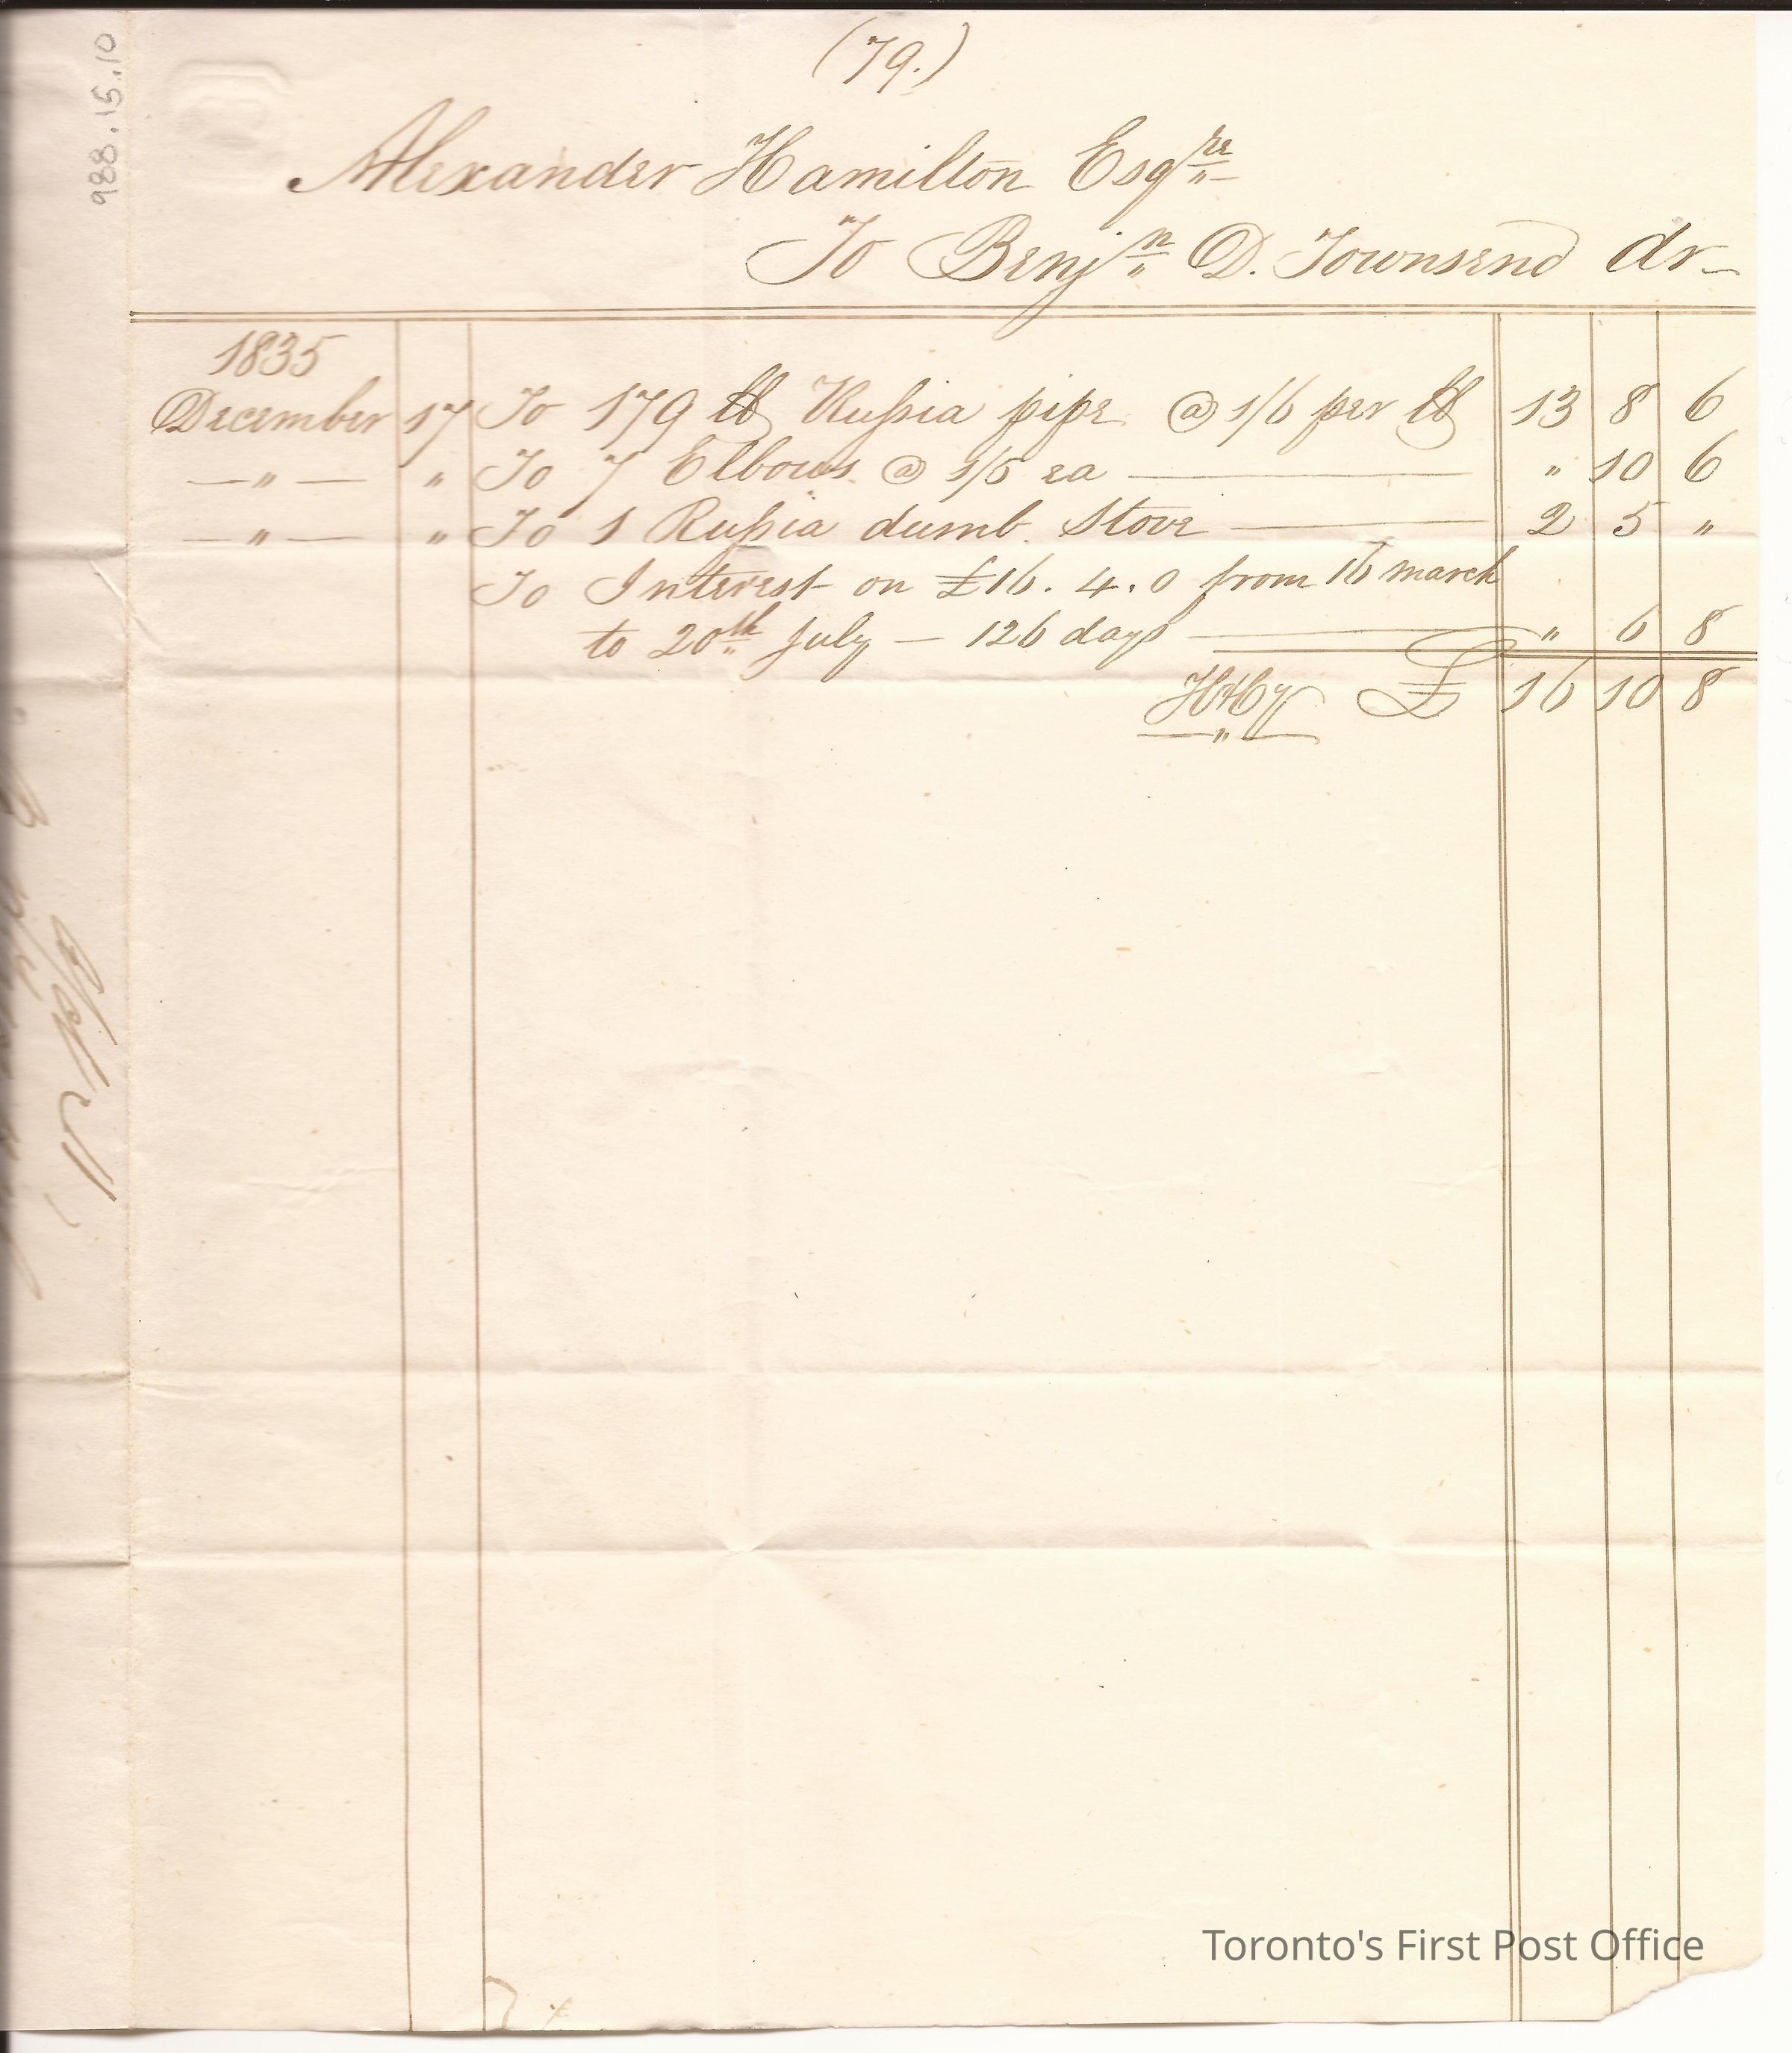 (79.)
Alexander Hamilton Esqre
To Benjn D. Townsend dr
1835
December 17 To 179 lb Russia pipe @ 1/6 per lb 13 8 6
—"— " To 7 Elbows @ 1/6 ea " 10 6
—"— " To 1 Russia dumb Stove 2 5 "
To Interest on £16. 4. 0 from 16 march
to 20th July — 126 days " 6 8
£ 16 10 8
988.15.10
Toronto's First Post Office